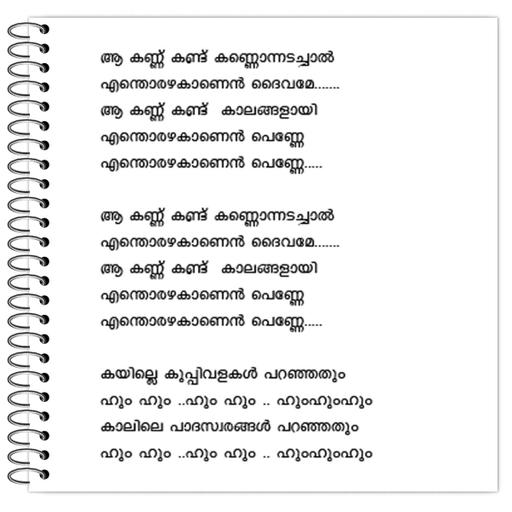 ആ കണ്ണ് കണ്ട് കണ്ണൊന്നടച്ചാൽ
എന്തൊരഴകാണെൻ ദൈവമേ.......
ആ കണ്ണ് കണ്ട് കാലങ്ങളായി
എന്തൊരഴകാണെൻ പെണ്ണേ
എന്തൊരഴകാണെൻ പെണ്ണേ.....
ആ കണ്ണ് കണ്ട് കണ്ണൊന്നടച്ചാൽ
എന്തൊരഴകാണെൻ ദൈവമേ.......
ആ കണ്ണ് കണ്ട് കാലങ്ങളായി
എന്തൊരഴകാണെൻ പെണ്ണേ
എന്തൊരഴകാണെൻ പെണ്ണേ.....
കയില്ലെ കുപ്പിവളകൾ പറഞ്ഞതും
ഹും ഹും ..ഹും ഹും .. ഹുംഹുംഹും
കാലിലെ പാദസ്വരങ്ങൾ പറഞ്ഞതും
ഹും ഹും ..ഹും ഹും .. ഹുംഹുംഹും